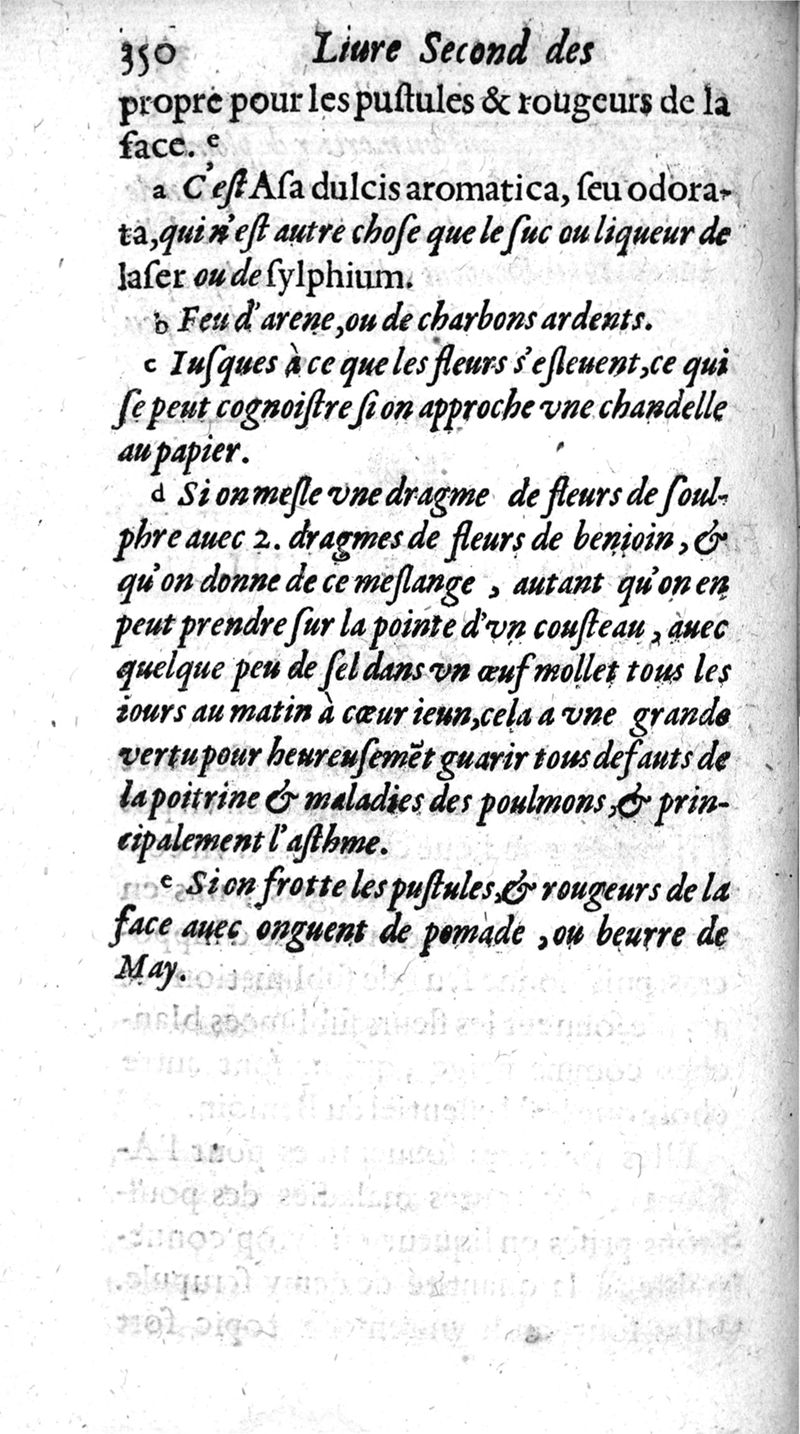 350 Liure Second des
propre pour les puſtules & rougeurs de la
face. e
a C'eſt Aſa dulcis aromatica, ſeu odora-
ta, qui n'eſt autre choſe que le ſuc ou liqueur de
laſer ou de ſylphium.
b Feu d'arene, ou de charbons ardents.
c Iuſques à ce que les fleurs s'eſleuent, ce qui
ſe peut cognoiſtre ſi on approche vne chandelle
au papier.
d Si on meſle vne dragme de fleurs de ſoul-
phre auec 2. dragmes de fleurs de benioin, &
qu'on donne de ce meſlange, autant qu'on en
peut prendre ſur la pointe d'vn couſteau, auec
quelque peu de ſel dans vn œuf mollet tous les
iours au matin à cœur ieun, cela a vne grande
vertu pour heureuſemēt guarir tous defauts de
la poitrine & maladies des poulmons, & prin-
cipalement l'aſthme.
e Si on frotte les puſtules, & rougeurs de la
face auec onguent de pomade, ou beurre de
May.